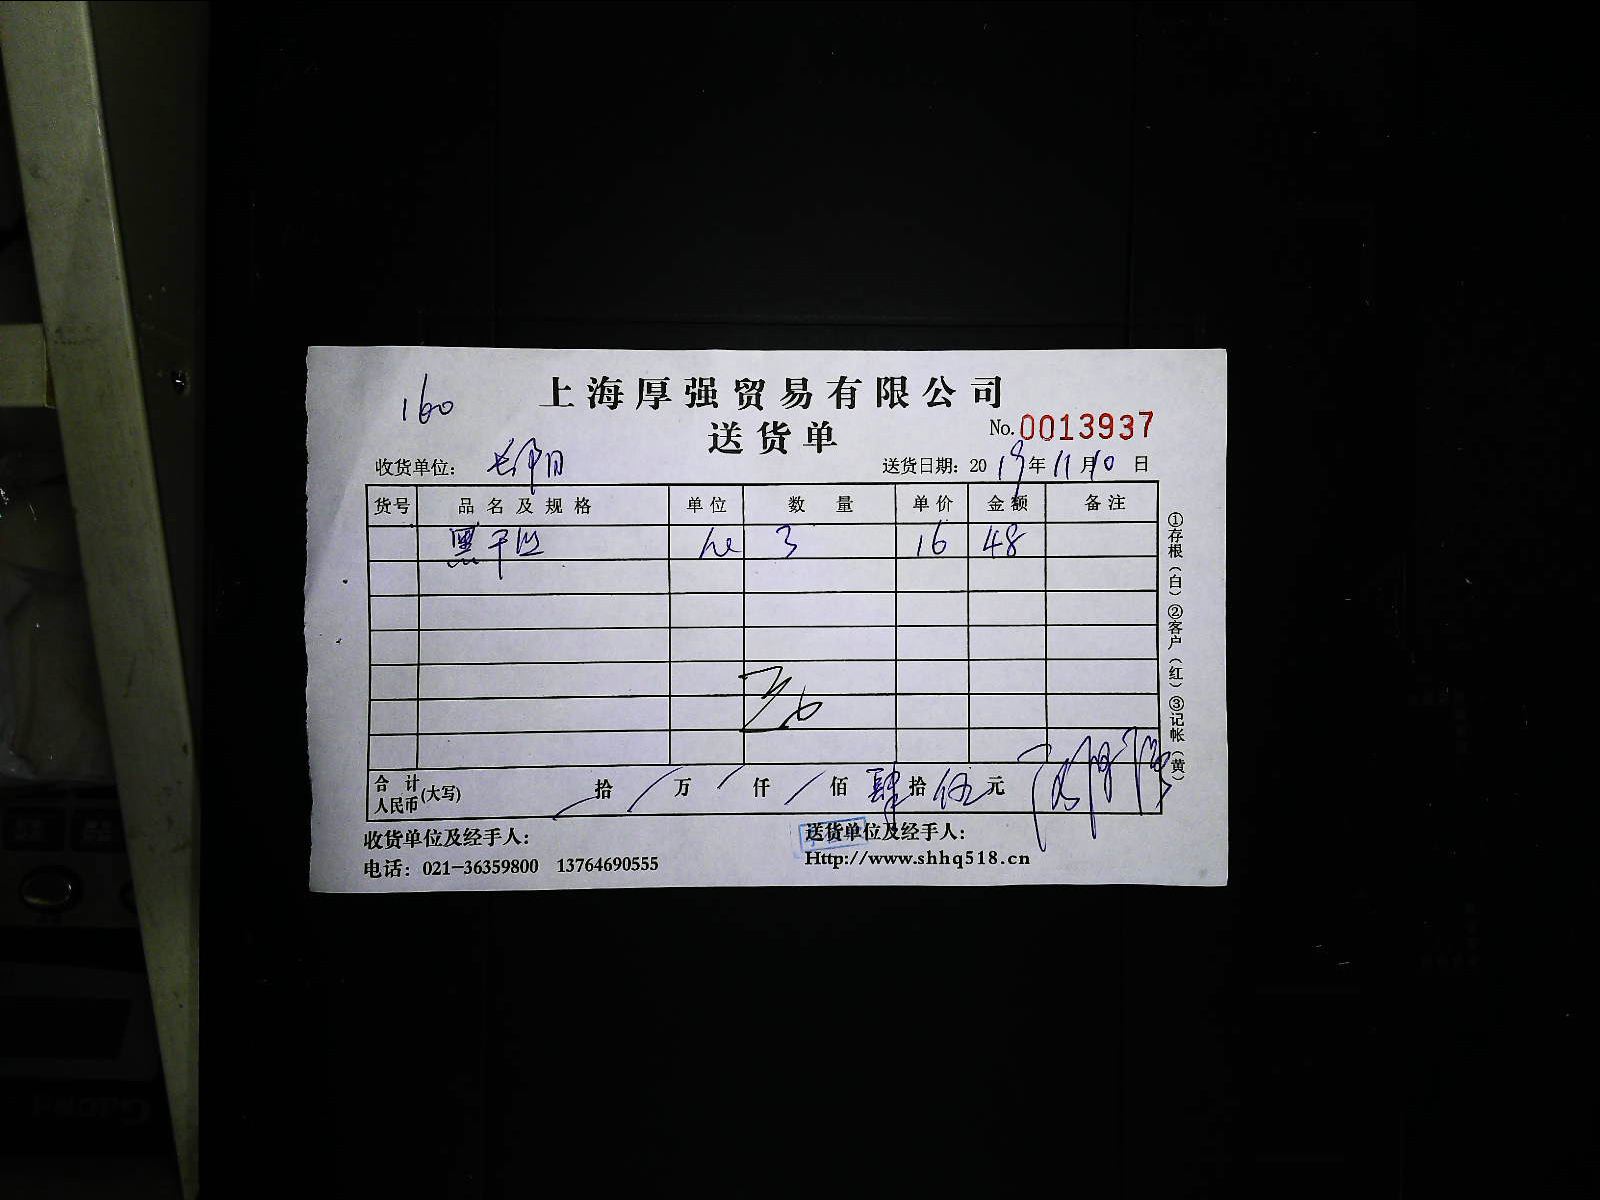 160
上海厚强贸易有限公司
送货单
No.0013937
收货单位：
送货日期：2019年11月10日
货号 品名及规格 单位 数量 单价 金额 备注
黑 3 16 48
合计人民币(大写) 拾 万 仟 佰 肆拾伍元
收货单位及经手人：
送货单位及经手人：
电话：021-36359800 13764690555
Http://www.shhq518.cn
①存根（白）②客户（红）③记帐（黄）